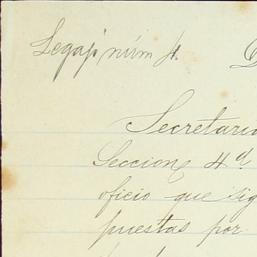 Legajo núm 4.
Secretaria
Seccion 4ª
oficio que sig
puestas por